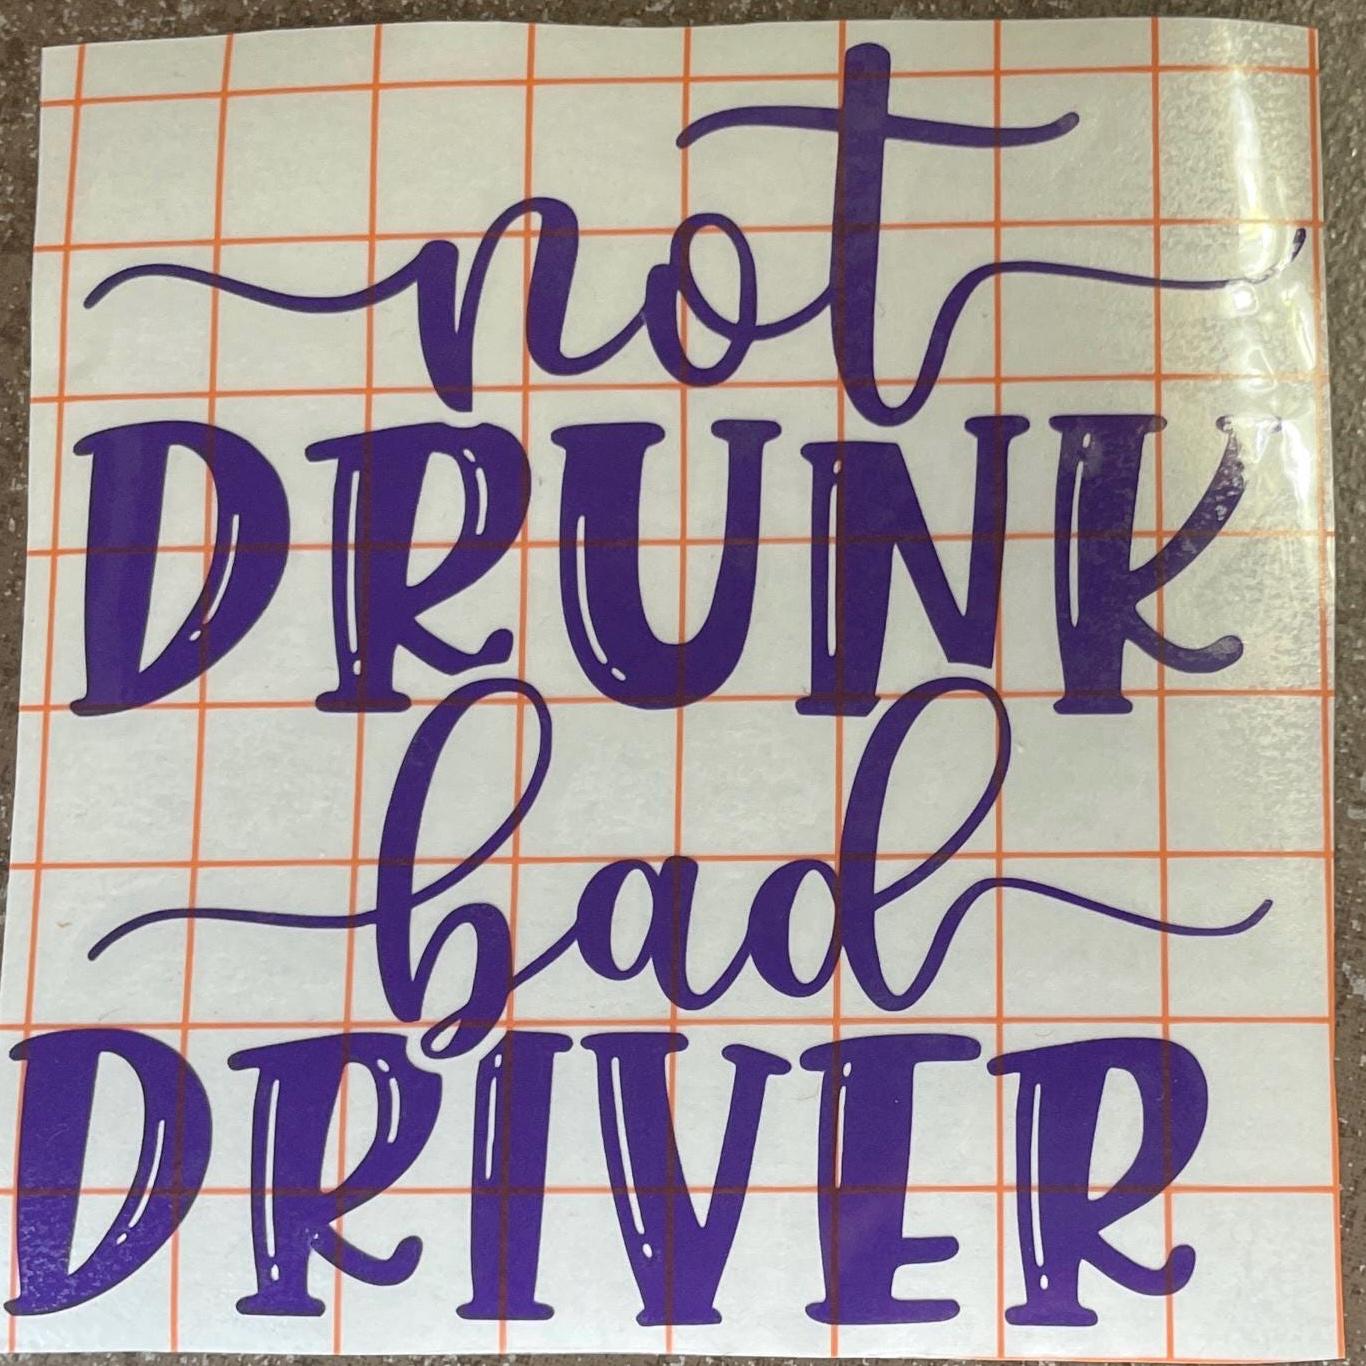 not
DRUNK
bad
DRIVER